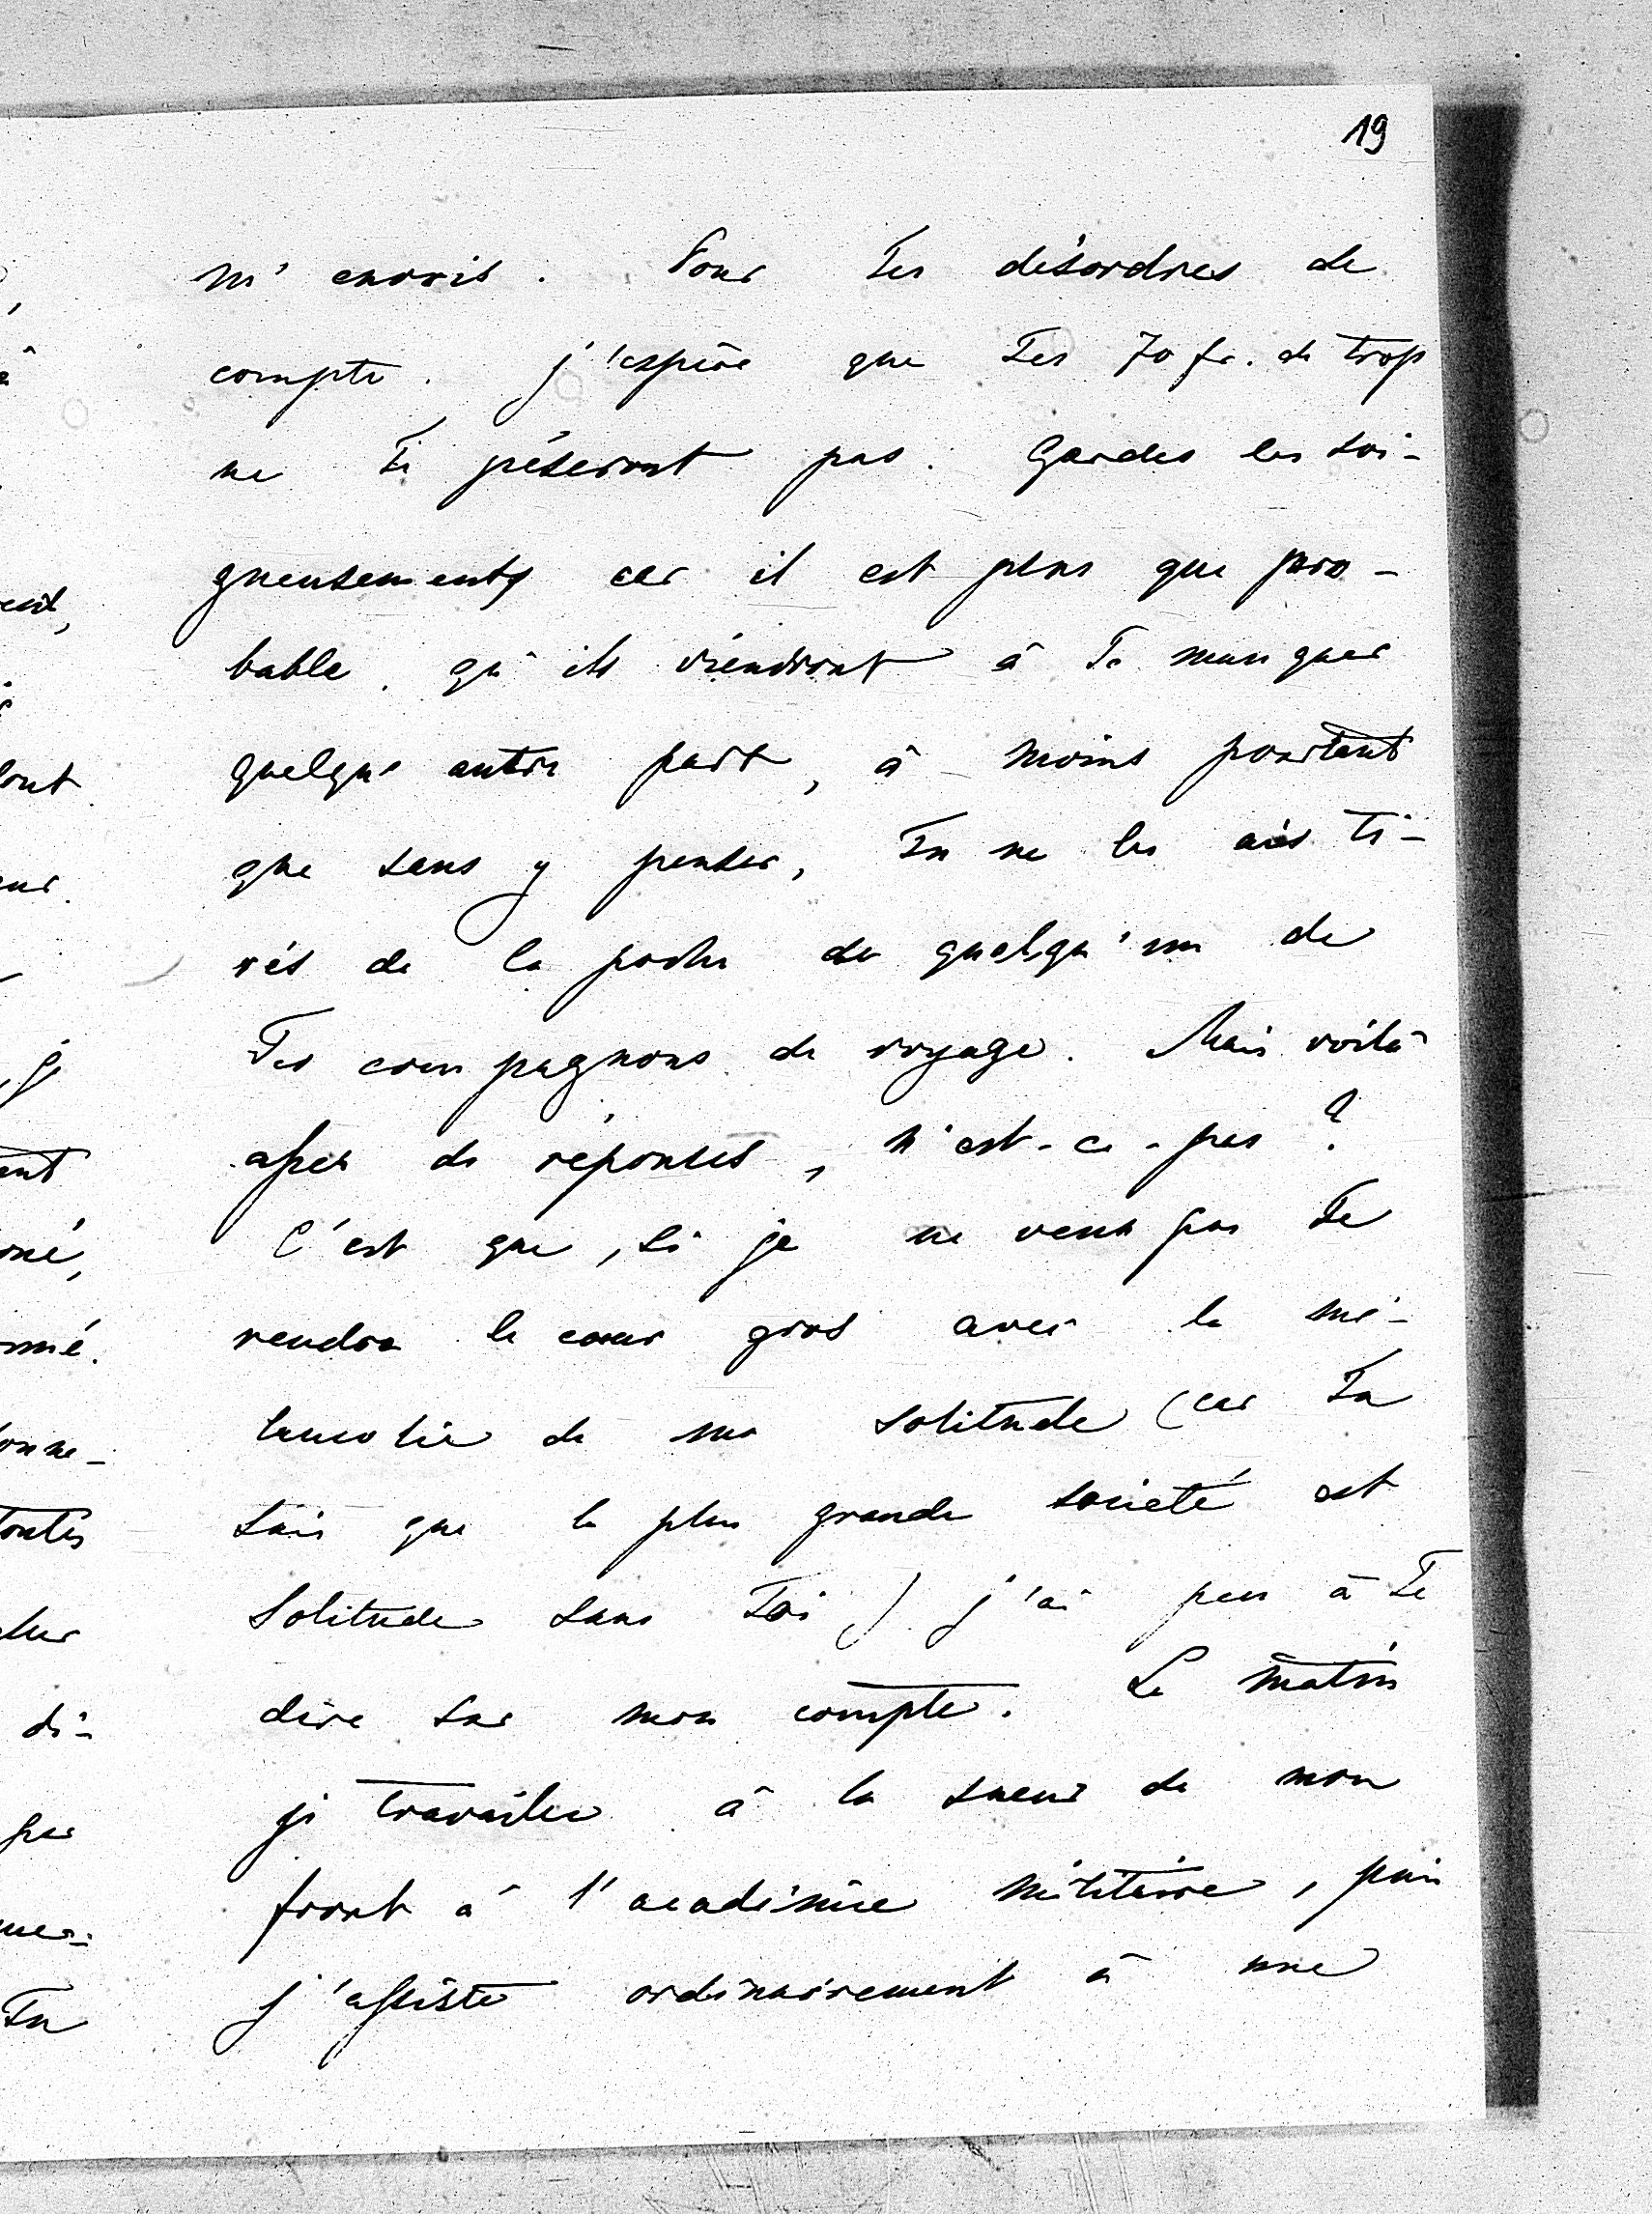 19
m'envoie. Pour Tes désordres de
compte. j'espère que Tes 70 fr. de trop
ne Te pèseront pas. Gardes les soi-
gneusement car il est plus que pro-
bable qu'ils viendront à Te manquer
quelque autre part, à moins pourtant
que sans y penser, Tu ne les aies ti-
rés de la poche de quelqu'un de
Tes compagnons de voyage. Mais voilà
assez de réponses, n'est-ce-pas?
C'est que, si je ne veux pas Te
rendre le cœur gros avec la mé-
lancolie de ma solitude (car Tu
sais que la plus grande société est
solitude sans Toi) j'ai peu à Te
dire sur mon compte. Le matin
je travaille à la sueur de mon
front à l'académie militaire, puis
j'assiste ordinairement à une